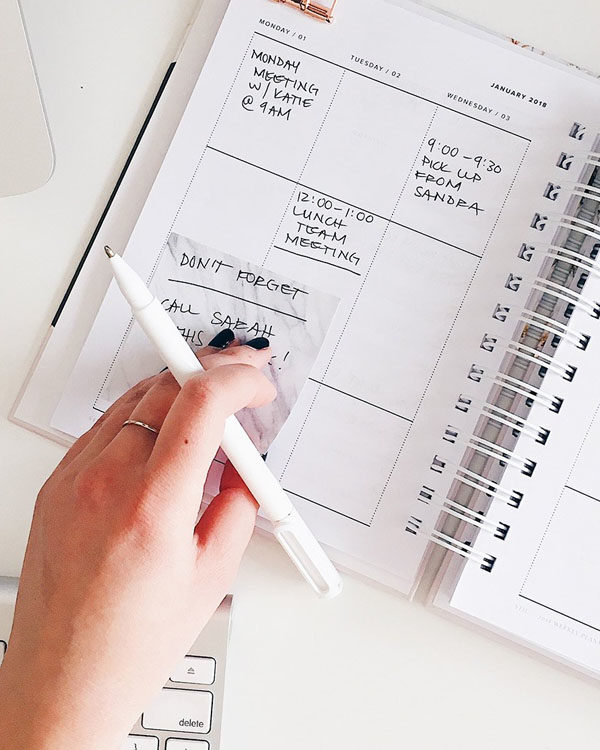 JANUARY 2018
MONDAY / 01
TUESDAY / 02
WEDNESDAY / 03
MONDAY
MEETING
W/ KATIE
@ 9AM
12:00-1:00
LUNCH
TEAM
MEETING
9:00-9:30
PICK UP
FROM
SANDRA
DON'T FORGET
CALL SARAH
THIS
delete